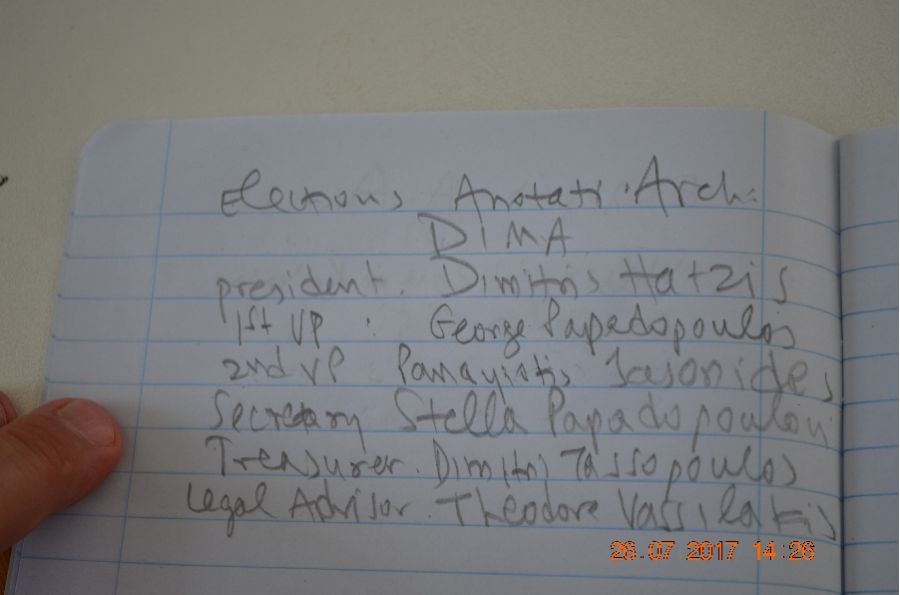 Elections Anotati Arch.
DIMA
president. Dimitris Hatzis
1st VP : George Papadopoulos
2nd VP Panayiotis Iasonides
Secretary Stella Papadopoulou
Treasurer. Dimitri Tassopoulos
Legal Advisor. Theodore Vassilakis
26.07 2017 14:26